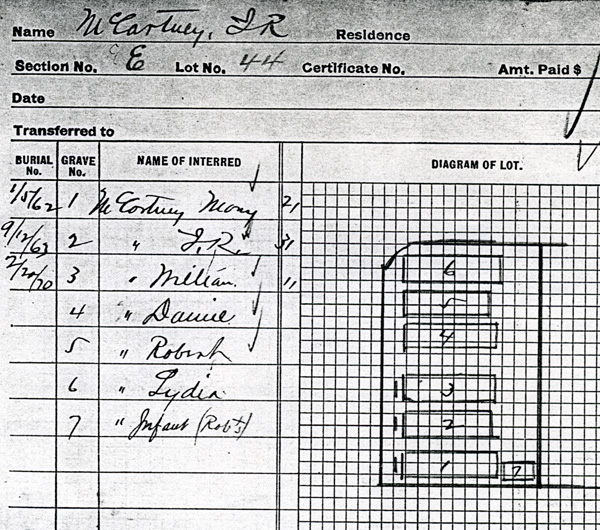 Name McCartney, J R Residence
Section No. E Lot No. 44 Certificate No. Amt. Paid $
Date
Transferred to
BURIAL No. GRAVE No. NAME OF INTERRED DIAGRAM OF LOT.
1/5/62 1 McCartney Mary 21
9/12/63 2 " J. R. 31
2/20/70 3 " William 11
4 "
5 " Robert
6 " Lydia
7 " Infant (Robt's)
6
5
4
3
2
1 7